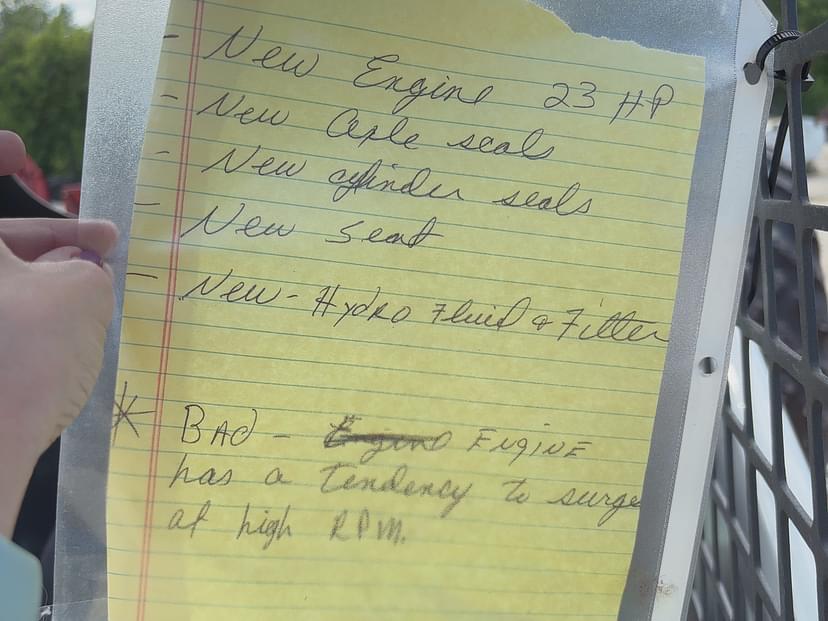 - New Engine 23 HP
- New Axle seals
- New cylinder seals
- New Seat
- New - Hydro Fluid & Filter
* BAd - Engine ENgiNE
has a Tendency to surge
at high RPM.